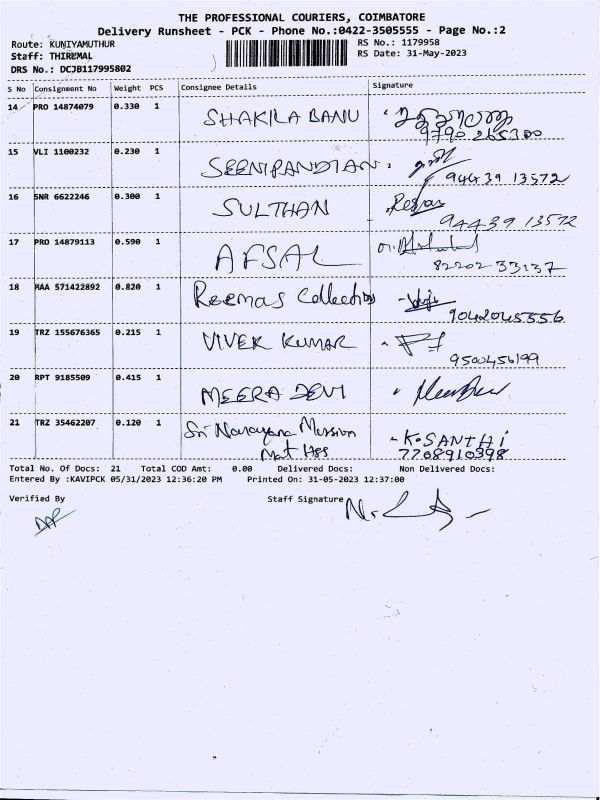 THE PROFESSIONAL COURIERS, COIMBATORE
Delivery Runsheet - PCK - Phone No.:0422-3505555 - Page No.:2
Route: KUNIYAMUTHUR RS No.: 1179958
Staff: THIREMAL RS Date: 31-May-2023
DRS No.: DCJB117995802
S No Consignment No Weight PCS Consignee Details Signature
14 PRO 14874079 0.330 1 SHAKILA BANU
9790 265300
15 VLI 1100232 0.230 1 SEENIPANDIAN
94439 13572
16 SNR 6622246 0.300 1 SULTHAN
94439 13572
17 PRO 14879113 0.590 1 AFSAL
82202 33137
18 MAA 571422892 0.820 1 Reemas Collections
9042045556
19 TRZ 155676365 0.215 1 VIVEK KUMAR
9500456199
20 RPT 9185509 0.415 1 MEERA DEVI
21 TRZ 35462207 0.120 1 Sri Narayana Mission K. SANTHI
Mat Hss 7708910398
Total No. Of Docs: 21 Total COD Amt: 0.00 Delivered Docs: Non Delivered Docs:
Entered By :KAVIPCK 05/31/2023 12:36:20 PM Printed On: 31-05-2023 12:37:00
Verified By Staff Signature